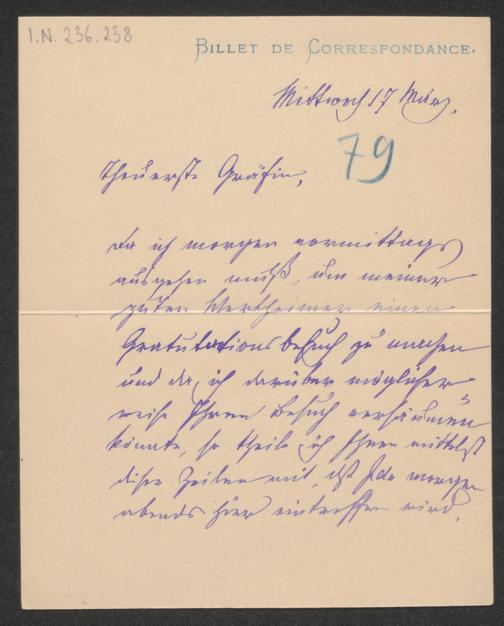 I.N. 236.238
BILLET DE CORRESPONDANCE.
Mittwoch 17 März.
79
Theuerste Gräfin,
Da ich morgen vormittags
ausgehen muß, um meiner
guten Wertheimer einen
Gratulationsbesuch zu machen
und da ich darüber möglicher
weise Ihren Besuch versäumen
könnte, so theile ich Ihnen mittelst
diser Zeilen mit, dß Ida morgen
abends hier eintreffen wird.